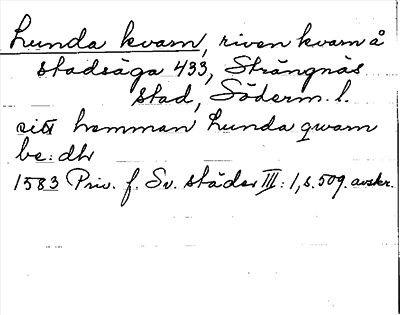 Lunda kvarn, riven kvarn å
stadsäga 433, Strängnäs
stad, Söderm. l.
eitt hemman Lunda qwarn
be:dhr
1583 Priv. f. Sv. städer III:1, s. 509. avskr.